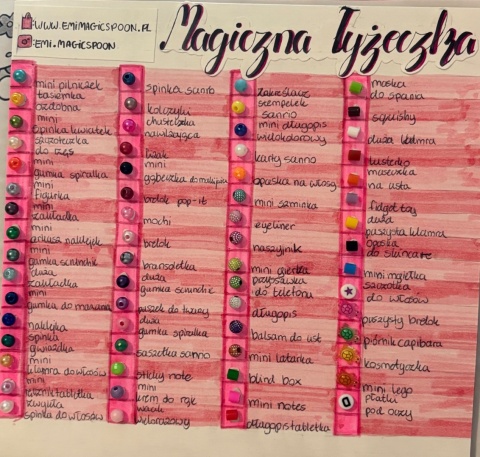 WWW.EMIMAGICSPOON.PL
:EMI.MAGICSPOON
Magiczna Łyżeczka
mini pilniczek
tasiemka
ozdobna
mini
spinka kwiatek
szczoteczka
do rzęs
mini
gumka spiralka
mini
figurka
mini
zakładka
mini
arkusz naklejek
mini
gumka scrunchie
duża
zakładka
mini
gumka do mazania
naklejka
spinka
gwiazdka
mini
klamra do włosów
mini
zwykła
spinka do włosów
spinka sanrio
kolczyki
chusteczka
nawilżająca
mini
gąbeczka do makijażu
brelok pop-it
mochi
brelok
bransoletka
duża
gumka scrunchie
duża
gumka spiralka
saszetka sanrio
sticky note
mini
krem do rąk
zakreślacz
stempelek
sanrio
mini długopis
wielokolorowy
karty sanrio
opaska na włosy
mini szminka
eyeliner
naszyjnik
mini gierka
przypinka
do telefonu
długopis
balsam do ust
mini latarka
blind box
mini notes
długopis tabletka
maska
do spania
squishy
duża klamra
lusterko
maseczka
na usta
fidget toy
duża
puszysta klamra
opaska
do skincare
mini maletka
szczotka
do włosów
puszysty brelok
piórnik capibara
kosmetyczka
mini lego
płatki
pod oczy